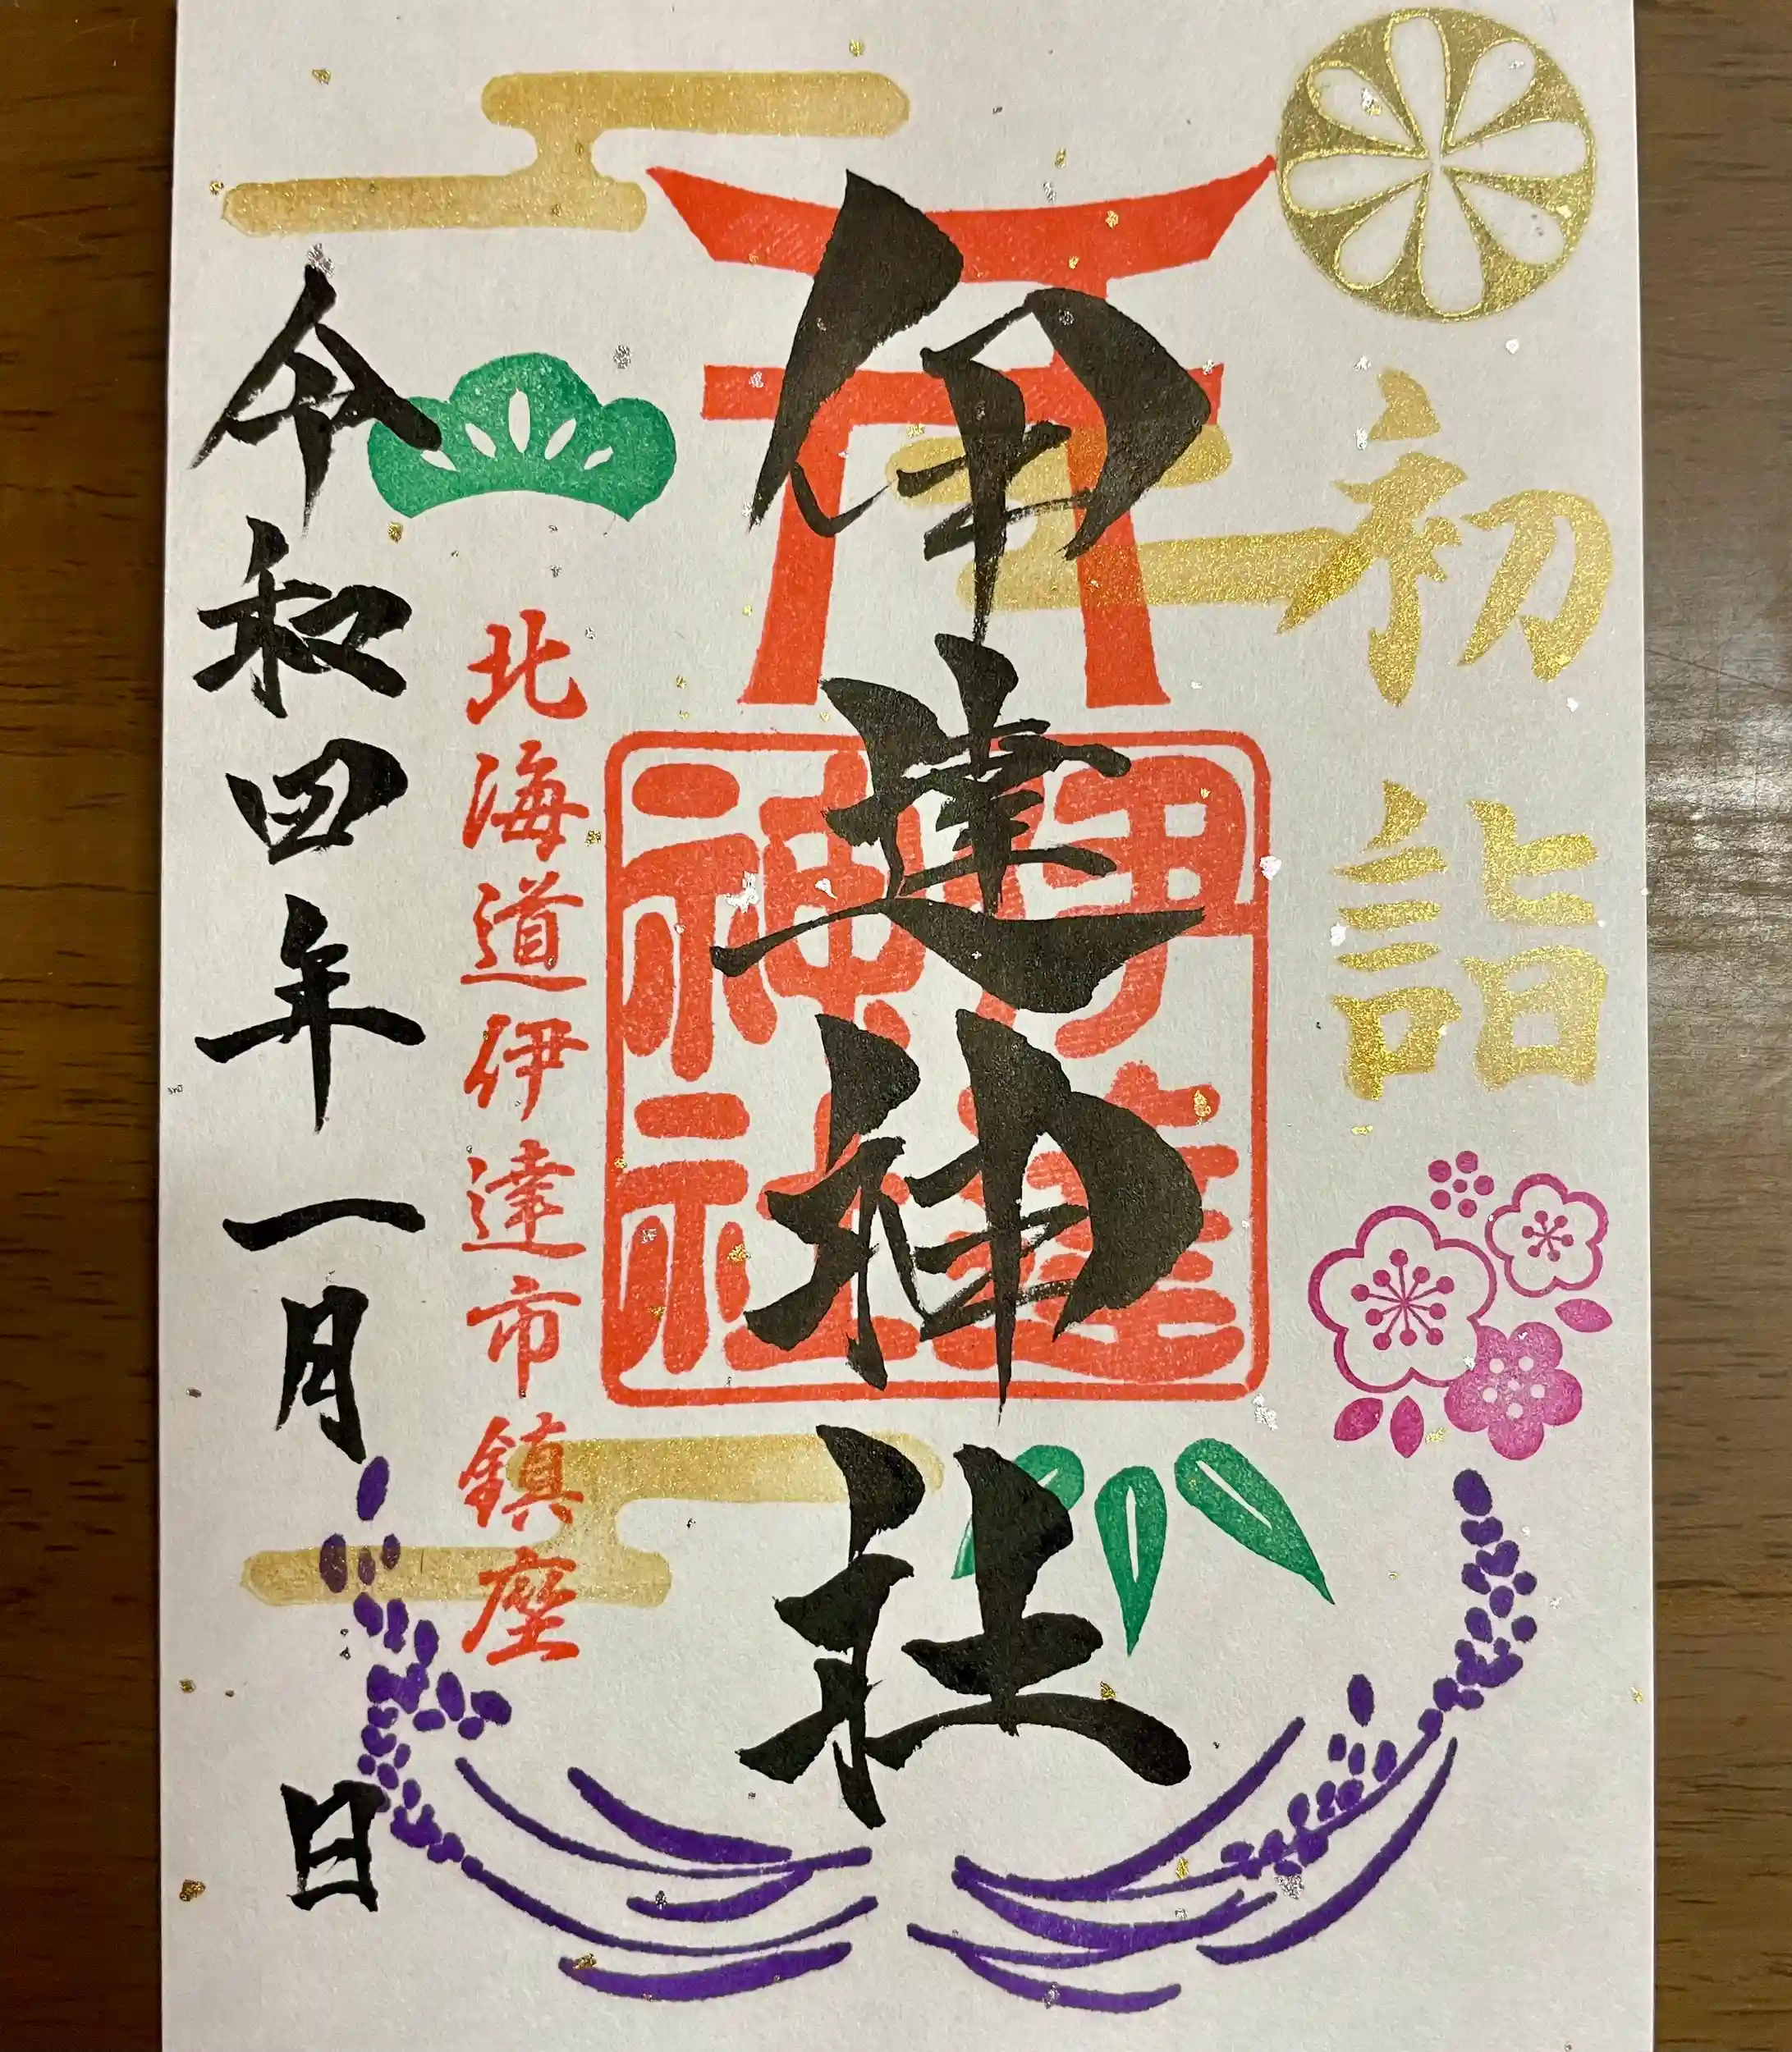 初詣
伊達神社
伊達
神社
北海道伊達市鎮座
令和四年一月 日